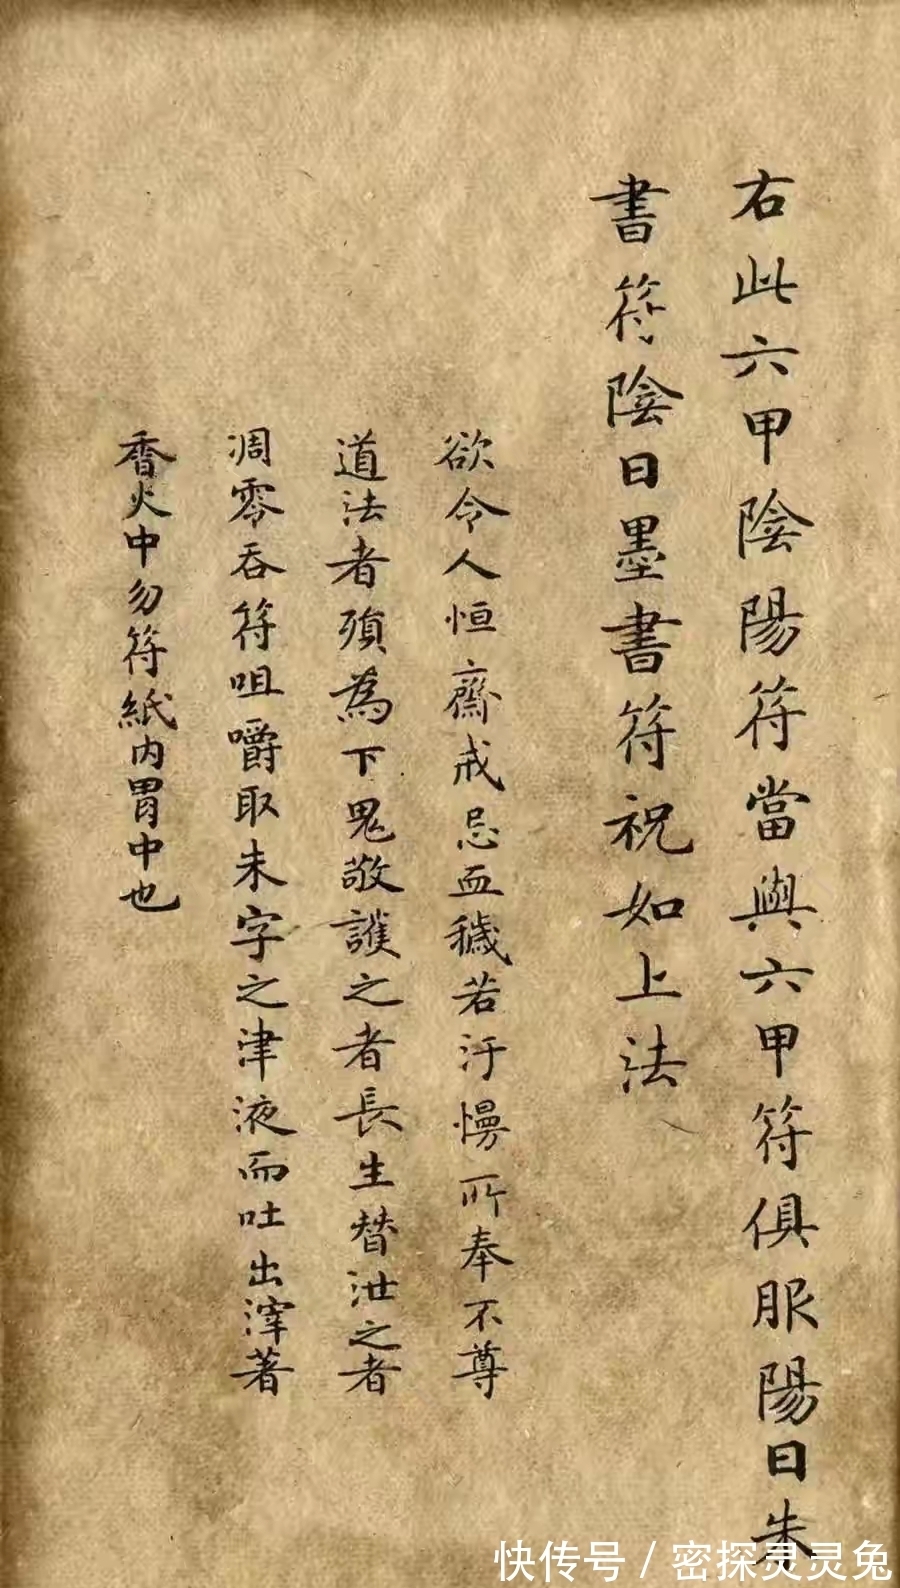 右此六甲陰陽符當與六甲符俱服陽日朱
書符陰日墨書符祝如上法
欲令人恒齋戒忌血穢若汙慢所奉不尊
道法者須為下鬼敬護之者長生替泄之者
凋零吞符咀嚼取朱字之津液而吐出滓著
香火中勿符紙內胃中也
快传号/密探灵灵兔